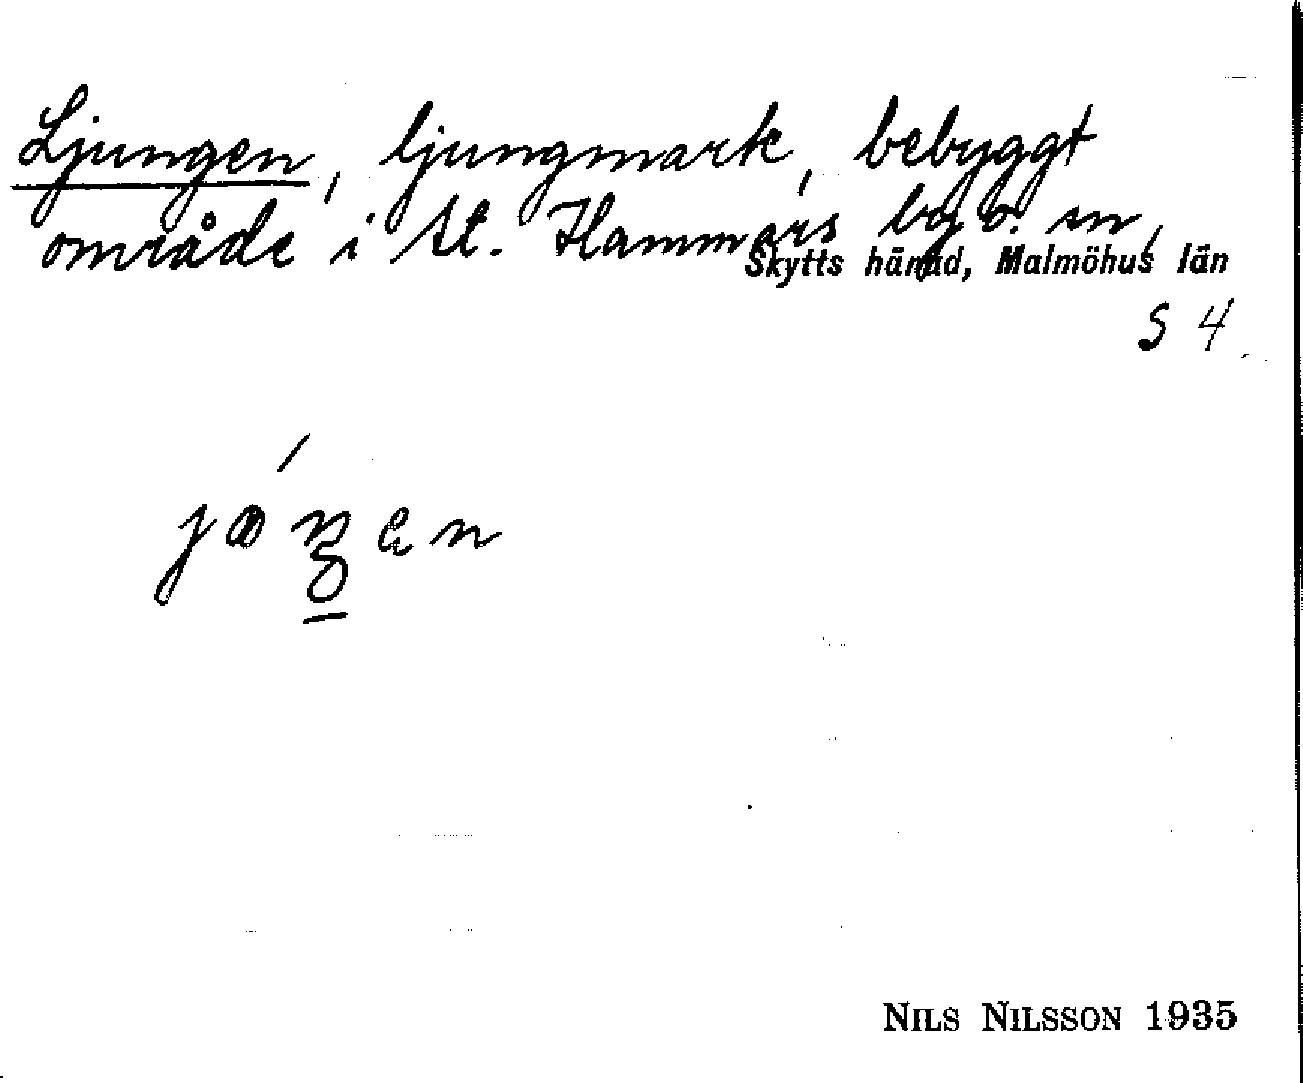 Ljungen, ljungmark, bebyggt
område i St. Hammars by o. sn,
Skytts härad, Malmöhus län
S 4
NILS NILSSON 1935